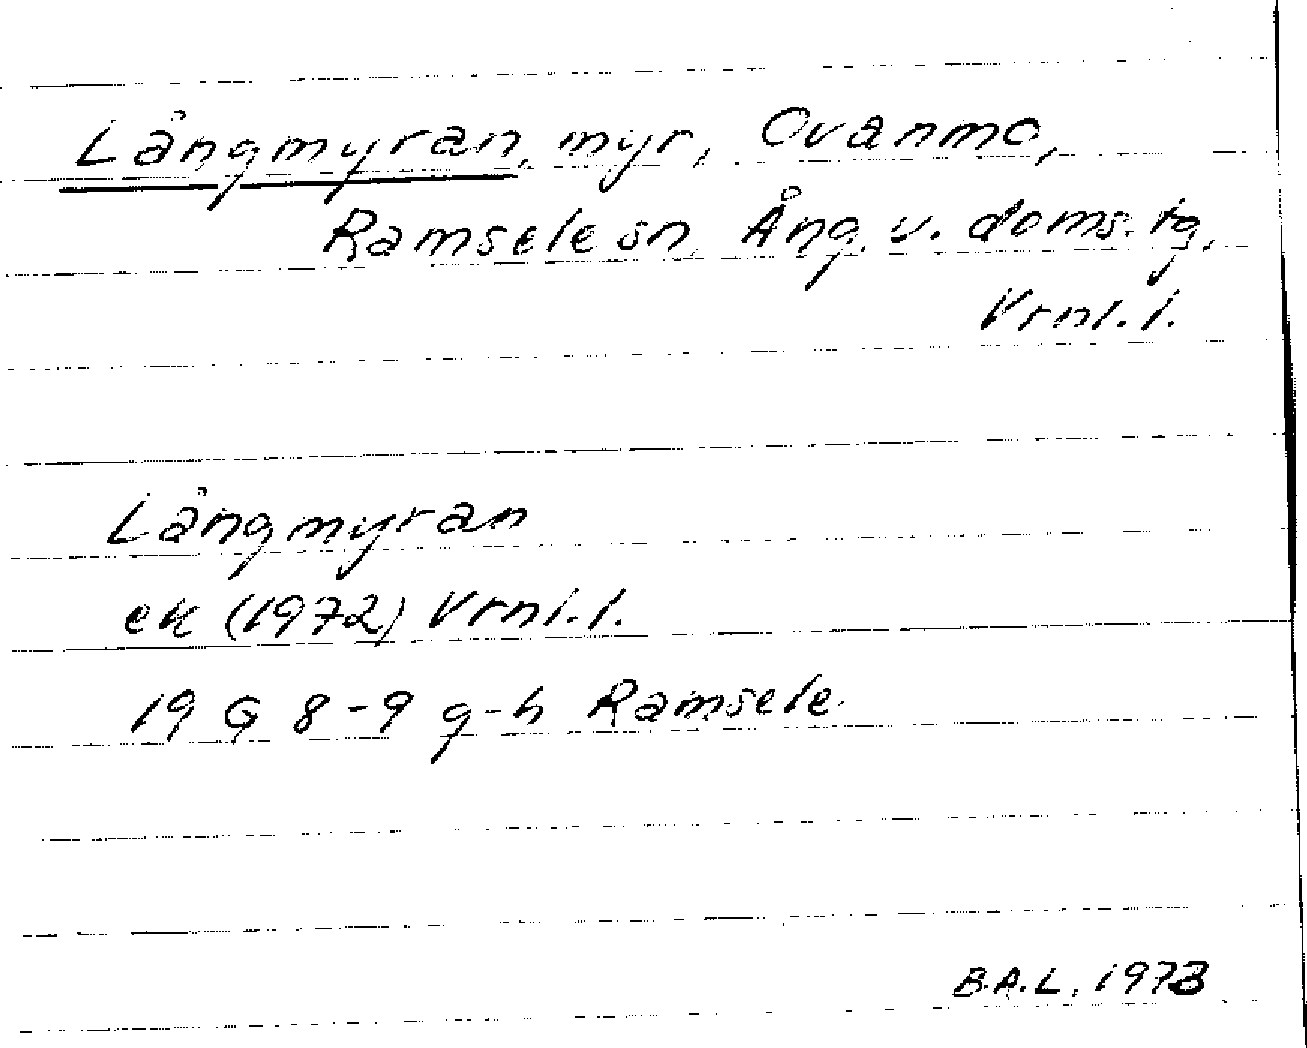 Långmyran, myr, Ovanmo,
Ramsele sn, Ång. v. doms. tg,
Vrnl. l.
Långmyran
ek (1972) Vrnl. l.
19 G 8-9 g-h Ramsele
B.A.L, 1973